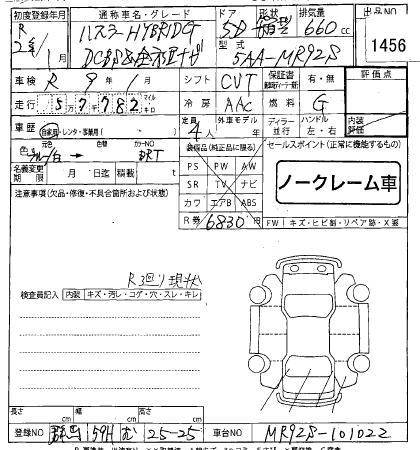 初度登録年月 通称車名・グレード ドア 形状 排気量 出品NO
R 2年 1月 ハスラーHYBRIDGT 5D 箱型 660cc 1456
DCBS&全方位ナビ 型式 5AA-MR92S
車検 R 9年 1月 シフト CVT 保証書 有・無 評価点
走行 57782 マイル キロ 冷房 AAC 燃料 G
車歴 自家用・レンタ・事業用 定員 4人 外車モデル 年 ディーラー 並行 ハンドル 左・右 内装 評価
色 元色 ブルー/白 色替 カラーNO DRT
装備品(純正品に限る) セールスポイント(正常に機能するもの)
名義変更期限 月 日迄 積載 t
PS PW AW
SR TV ナビ
カワ エアB ABS
ノークレーム車
R券 6830円
注意事項(欠品・修復・不具合箇所および改造状況)
FW キズ・ヒビ割・リペア跡・X要
R3回り現状
検査員記入 内装 キズ・汚レ・コゲ・穴・スレ・キレ
長さ cm 幅 cm 高さ cm
登録NO 群馬 59H む 25-25 車台NO MR92S-101022